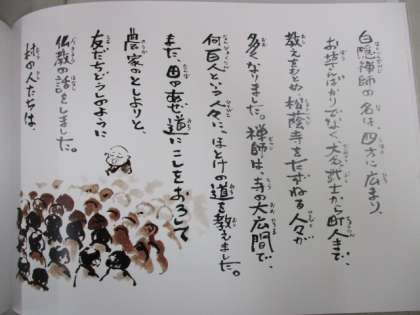 白隠禅師の名は、四方に広まり、
お坊さんばかりでなく、大名、武士から町人まで、
教えをもとめ松蔭寺をたずねる人々が
多くなりました。禅師は、寺の大広間で、
何百人という人々に、ほとけの道を教えました。
また、田のあぜ道にこしをおろして
農家のとしよりと、
友だちどうしのように
仏教の話をしました。
村の人たちは、